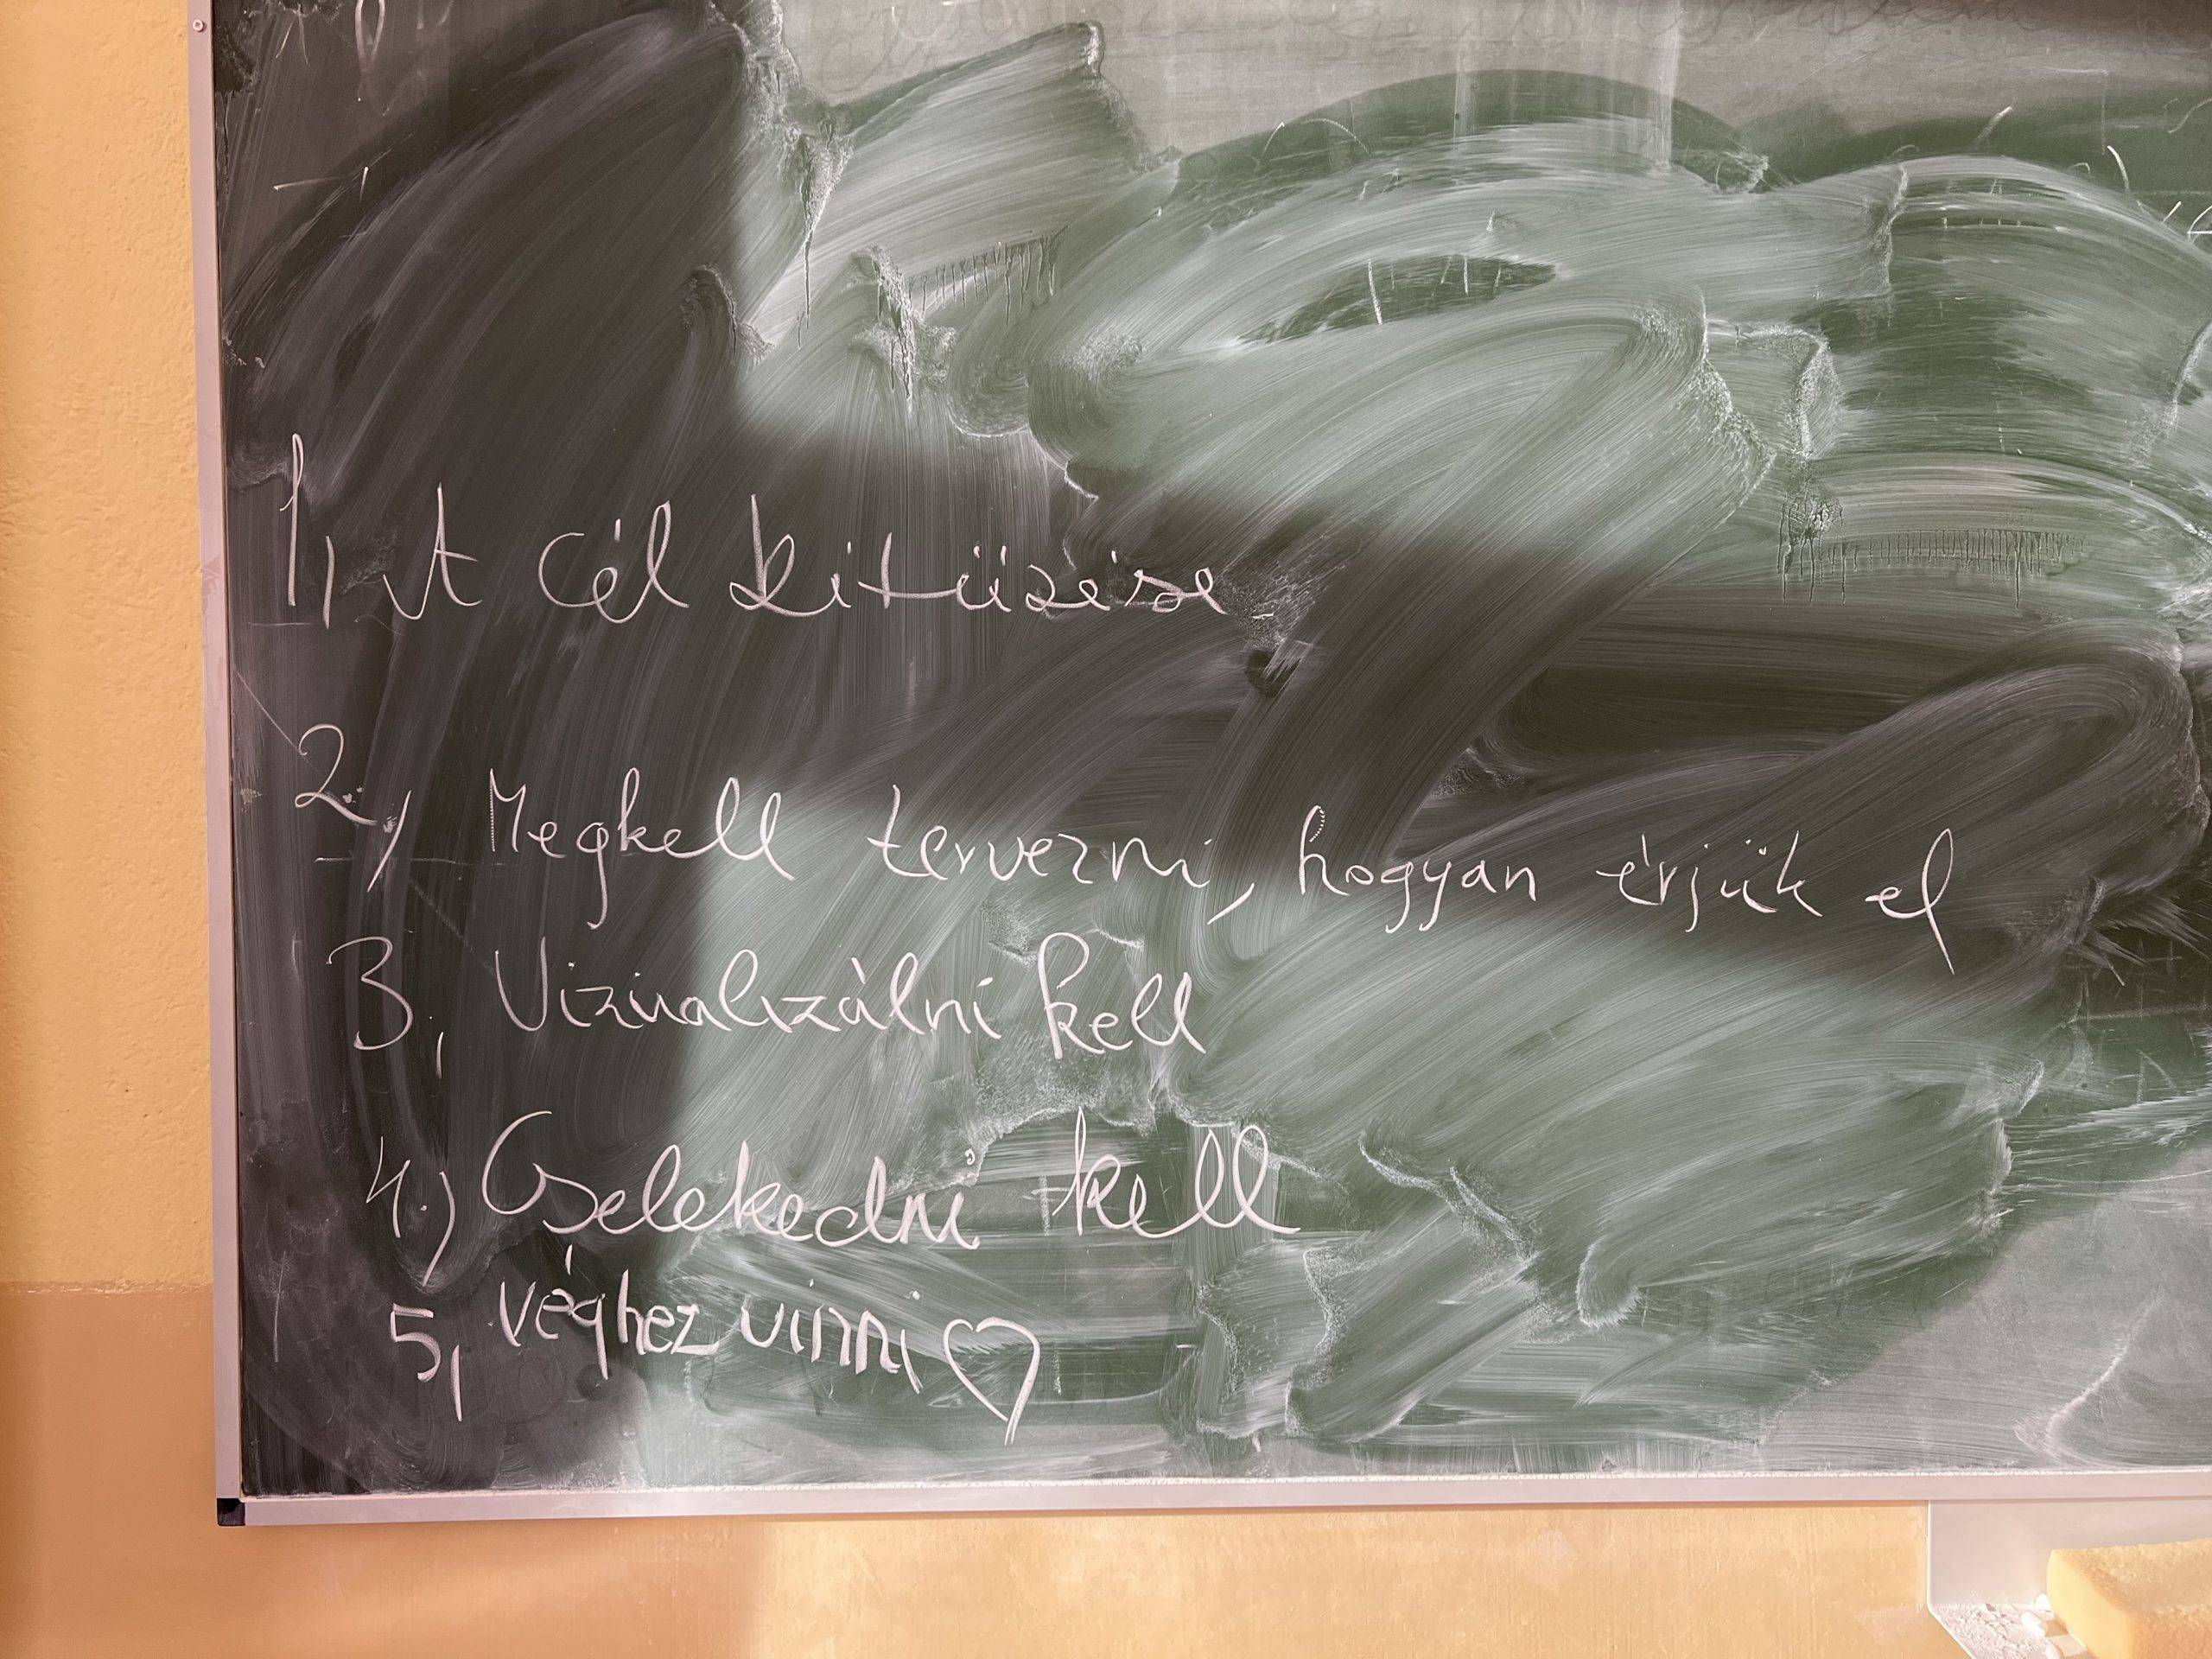 1, A cél kitüzése
2., Megkell tervezni, hogyan érjük el
3, Vizualizálni kell
4.) Cselekedni kell
5, véghez vinni ♡